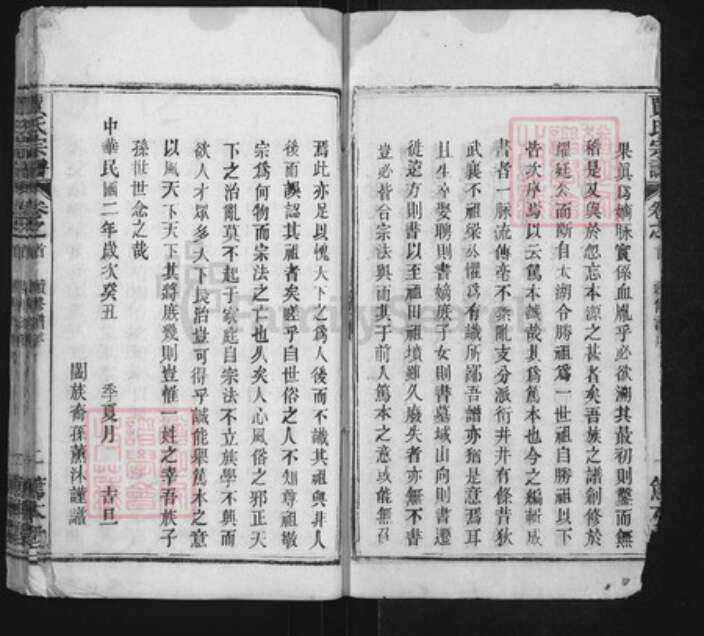 果眞爲嫡脉實係血胤乎必欲溯其最初則鑿而無
稽是又與於忽忘本源之甚者矣吾族之譜創修於
耀廷公而斷自太湖合勝祖爲一世祖自勝祖以下
皆次序焉以云篤本誠哉其爲篤本也今之編輯成
書者一脉流傳毫不紊亂支分派衍井井有條昔狄
武襄不祖梁公懼爲有識所鄙吾譜亦猶是意焉耳
且生卒娶聘則書嫡庶子女則書墓域山向則書遷
徙遠方則書以至祖田祖墳雖久廢失者亦無不書
豈必皆合宗法與而其于前人篤本之意或庶無負
焉此亦足以愧天下之爲人後而不識其祖與非人
後而誤認其祖者矣嗟乎自世俗之人不知尊祖敬
宗爲何物而宗法之亡也久矣人心風俗之邪正天
下之治亂莫不起于家庭自宗法不立族學不興而
欲人才眾多天下長治豈可得乎誠能舉篤本之意
以風天下天下其將庶幾則豈惟一姓之幸吾族子
孫世世念之哉
中華民國二年歲次癸丑 季夏月 吉旦
闔族裔孫薰沐謹譔
氏宗譜 卷之首
FamilySearch